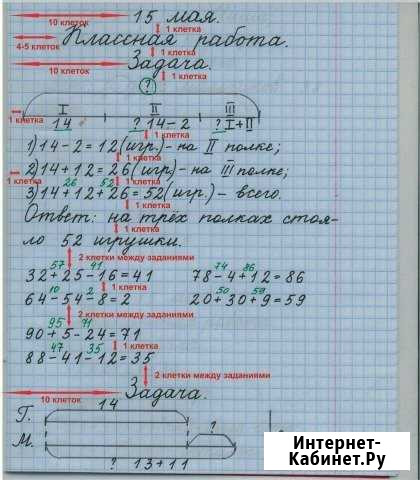 10 клеток 15 мая.
1 клетка
4-5 клеток Классная работа.
1 клетка
10 клеток Задача.
1 клетка
?
I II III
1 клетка 14 ? 14-2 ? I+II
1 клетка
1) 14-2=12 (игр.) - на II полке;
1 клетка
1 клетка 2) 14+12=26 (игр.) - на III полке;
26 52 1 клетка
3) 14+12+26=52 (игр.) - всего.
1 клетка
Ответ: на трёх полках стоя-
1 клетка
ло 52 игрушки.
2 клетки между заданиями
57 41 74 86
32+25-16=41 78-4+12=86
1 клетка
10 2 50 59
64-54-8=2 20+30+9=59
2 клетки между заданиями
95 71
90+5-24=71
47 35 1 клетка
88-41-12=35
2 клетки между заданиями
10 клеток Задача.
14
Г.
М. ?
? 13+11
Интернет-
Кабинет.Ру